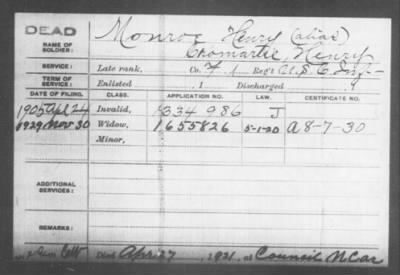 DEAD
NAME OF SOLDIER: Monroe Henry (alias)
Cromartie, Henry
SERVICE: Late rank, Co. F, 1 Reg't S.C. Inf
TERM OF SERVICE: Enlisted , 1 Discharged , 1
DATE OF FILING. CLASS. APPLICATION NO. LAW. CERTIFICATE NO.
1905 Apl 24 Invalid, 1334986 J
1929 Nov 30 Widow, 1655826 5-1-20 A 8-7-30
Minor,
ADDITIONAL SERVICES:
REMARKS:
Died Apr. 27, 1921, at Council N Car